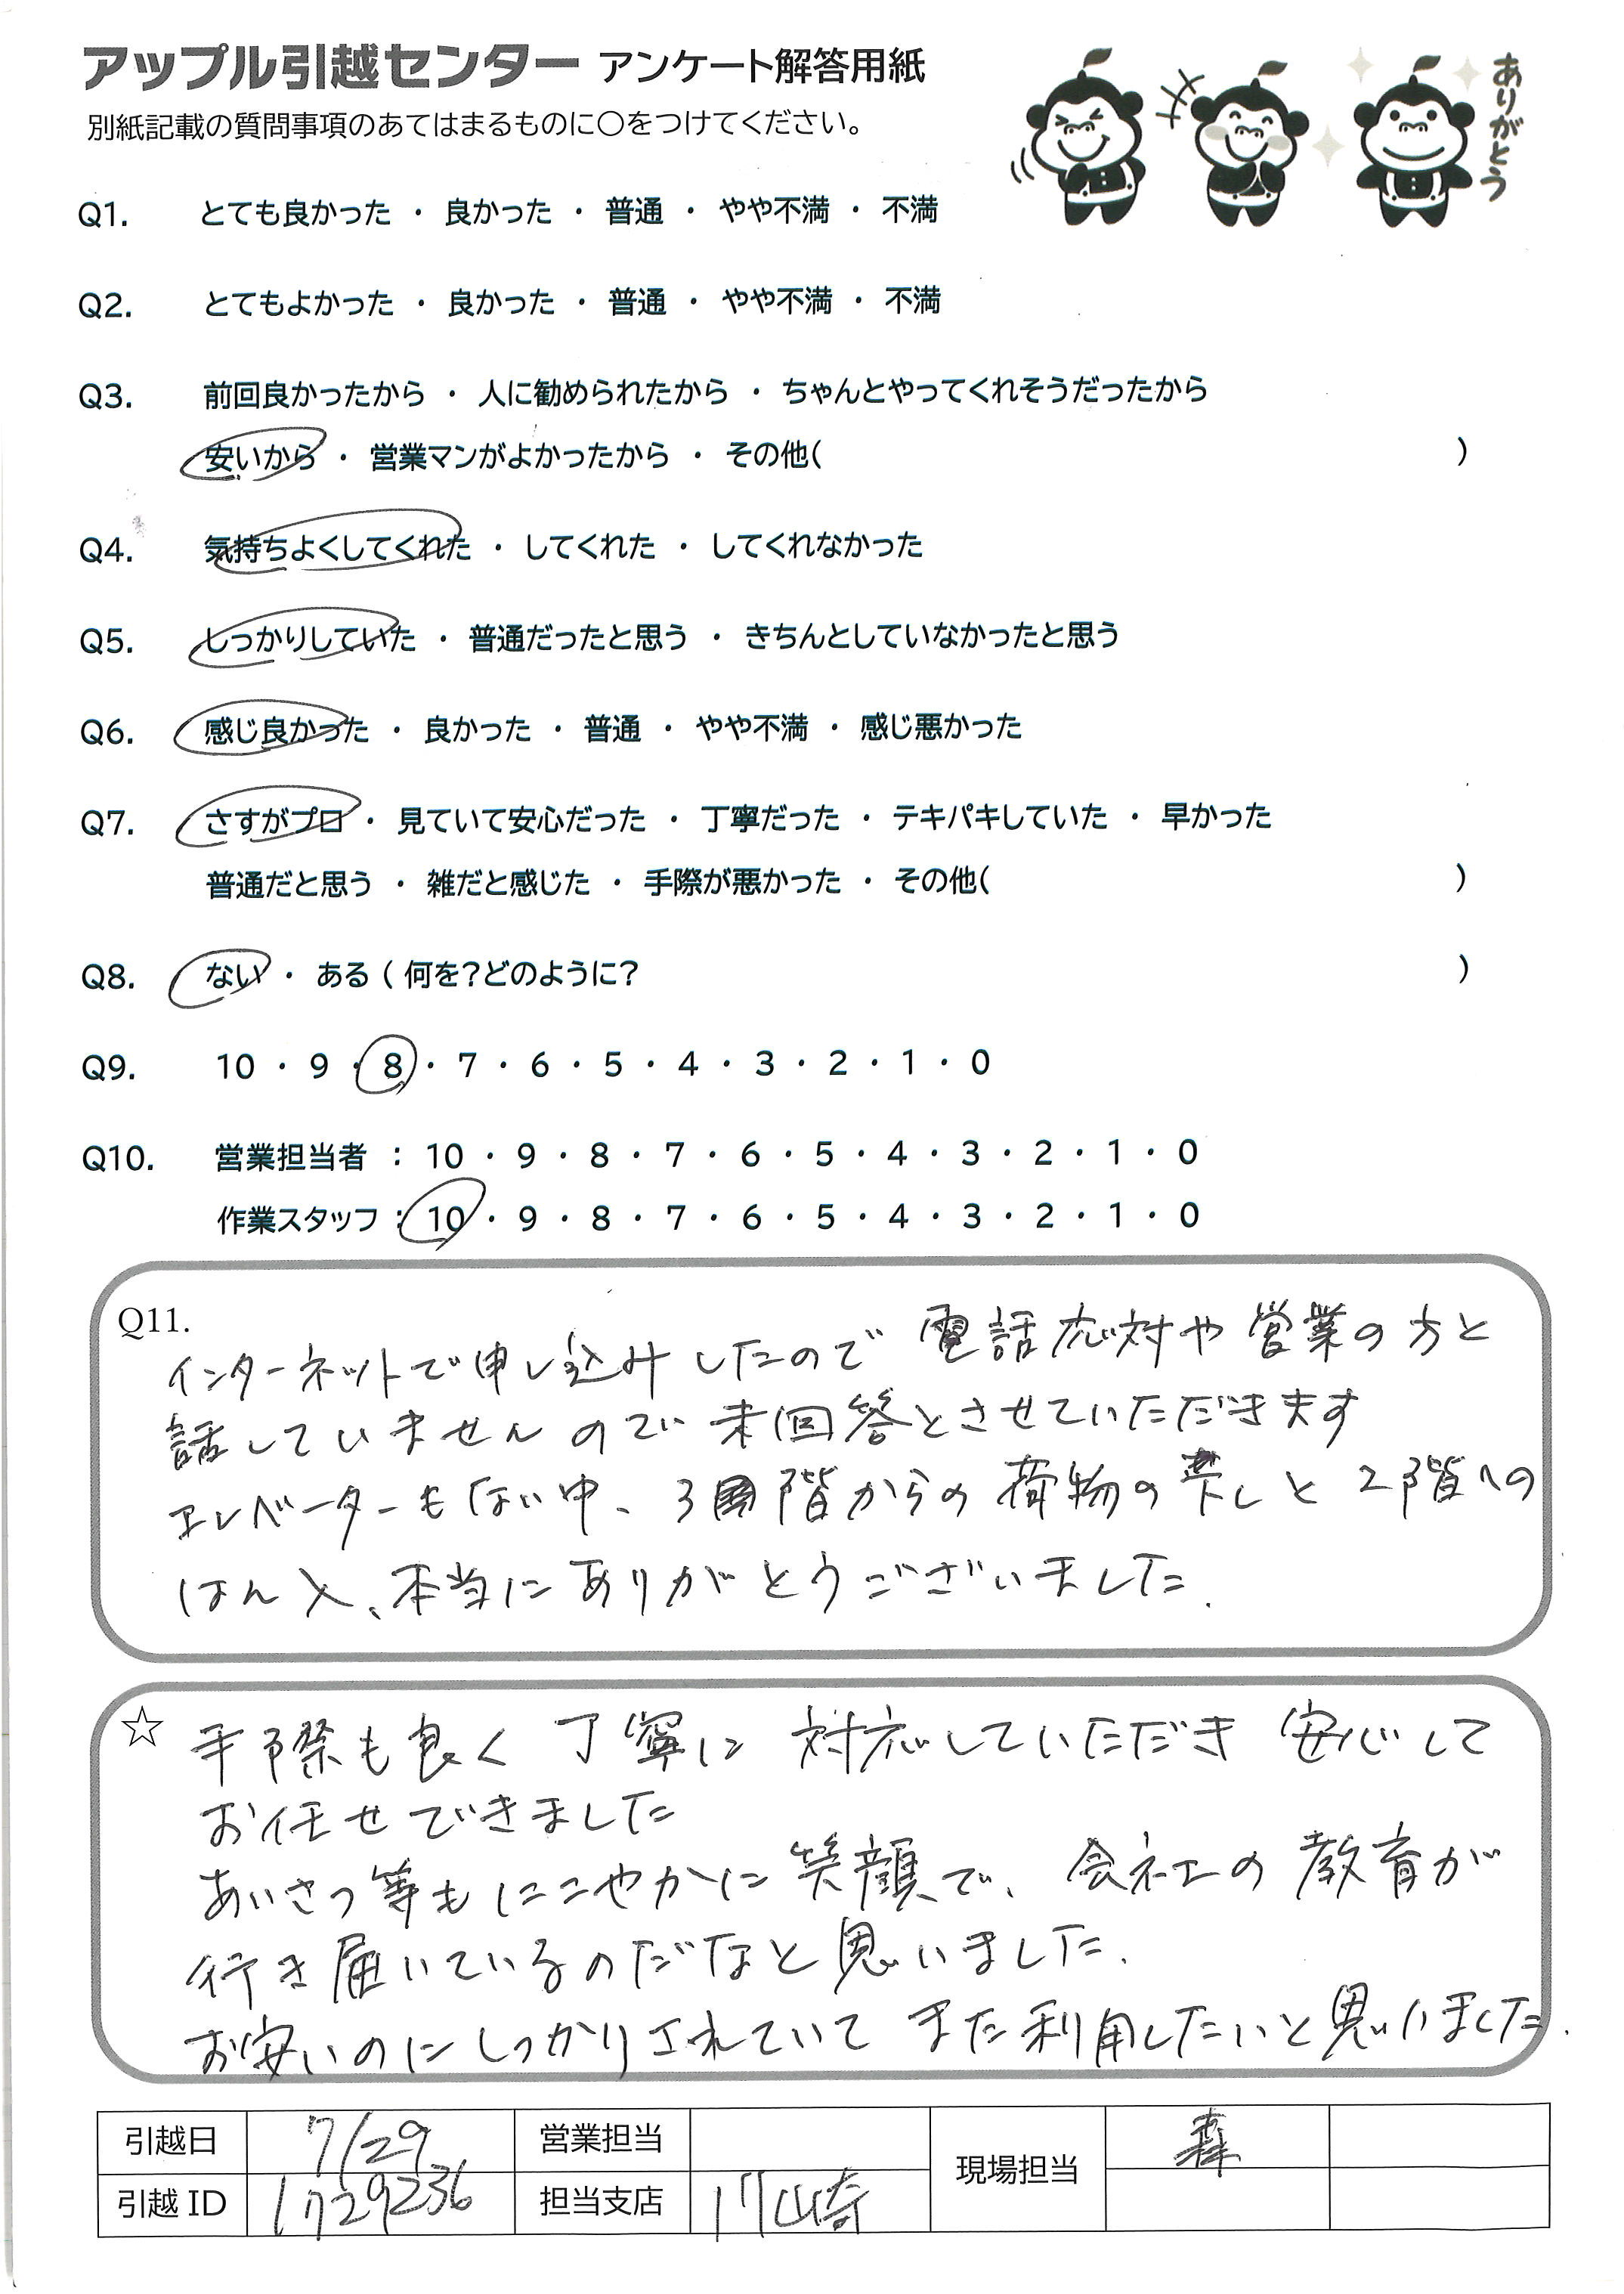 アップル引越センター アンケート解答用紙
別紙記載の質問事項のあてはまるものに○をつけてください。
ありがとう
Q1. とても良かった ・ 良かった ・ 普通 ・ やや不満 ・ 不満
Q2. とてもよかった ・ 良かった ・ 普通 ・ やや不満 ・ 不満
Q3. 前回良かったから ・ 人に勧められたから ・ ちゃんとやってくれそうだったから
安いから ・ 営業マンがよかったから ・ その他( )
Q4. 気持ちよくしてくれた ・ してくれた ・ してくれなかった
Q5. しっかりしていた ・ 普通だったと思う ・ きちんとしていなかったと思う
Q6. 感じ良かった ・ 良かった ・ 普通 ・ やや不満 ・ 感じ悪かった
Q7. さすがプロ ・ 見ていて安心だった ・ 丁寧だった ・ テキパキしていた ・ 早かった
普通だと思う ・ 雑だと感じた ・ 手際が悪かった ・ その他( )
Q8. ない ・ ある ( 何を?どのように? )
Q9. 10 ・ 9 ・ 8 ・ 7 ・ 6 ・ 5 ・ 4 ・ 3 ・ 2 ・ 1 ・ 0
Q10. 営業担当者 : 10 ・ 9 ・ 8 ・ 7 ・ 6 ・ 5 ・ 4 ・ 3 ・ 2 ・ 1 ・ 0
作業スタッフ : 10 ・ 9 ・ 8 ・ 7 ・ 6 ・ 5 ・ 4 ・ 3 ・ 2 ・ 1 ・ 0
Q11.
インターネットで申し込みしたので 電話応対や営業の方と
話していませんので 未回答とさせていただきます
エレベーターもない中、3階からの荷物の下しと2階への
はん入、本当にありがとうございました.
☆ 手際も良く 丁寧に 対応していただき 安心して
お任せできました
あいさつ等もにこやかに笑顔で、会社の教育が
行き届いているのだなと思いました.
お安いのにしっかりされていて また利用したいと思いました.
引越日 7/29 営業担当 現場担当 森
引越 ID 1729236 担当支店 川崎